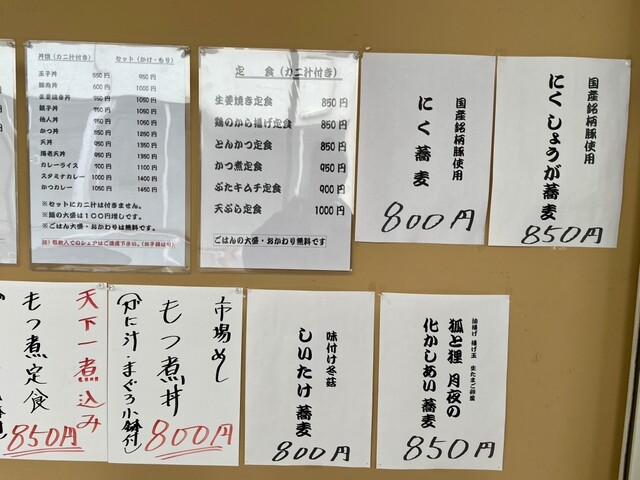 丼類（カニ汁付き）　セット（かけ・もり）
玉子丼　550円　950円
豚肉丼　600円　1000円
生姜焼き丼　950円　1050円
親子丼　1050円
他人丼　1050円
かつ丼　850円　1250円
天丼　950円　1350円
海老天丼　1350円
カレーライス　900円　1100円
スタミナカレー　1000円　1400円
かつカレー　1050円　1450円
※セットにカニ汁は付きません。
※麺の大盛は１００円増しです。
※ごはん大盛・おかわりは無料です。
定　食（カニ汁付き）
生姜焼き定食　850円
鶏のから揚げ定食　850円
とんかつ定食　850円
かつ煮定食　950円
ぶたキムチ定食　900円
天ぷら定食　1000円
ごはんの大盛・おかわり無料です
国産銘柄豚使用
にく蕎麦
800円
国産銘柄豚使用
にくしょうが蕎麦
850円
天下一煮込み
もつ煮定食
850円
市場めし
もつ煮丼
（かに汁・まぐろ小鉢付）
800円
味付け冬菇
しいたけ蕎麦
800円
油揚げ 揚げ玉 生たまご
狐と狸 月夜の
化かしあい蕎麦
850円